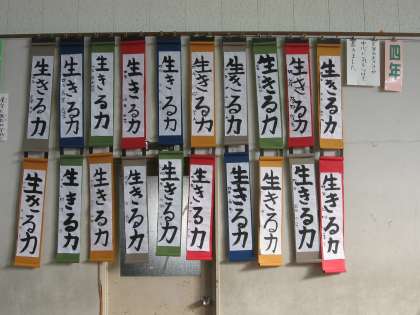 生きる力
生きる力
生きる力
生きる力
生きる力
生きる力
生きる力
生きる力
生きる力
生きる力
四年
生きる力
生きる力
生きる力
生きる力
生きる力
生きる力
生きる力
生きる力
生きる力
生きる力